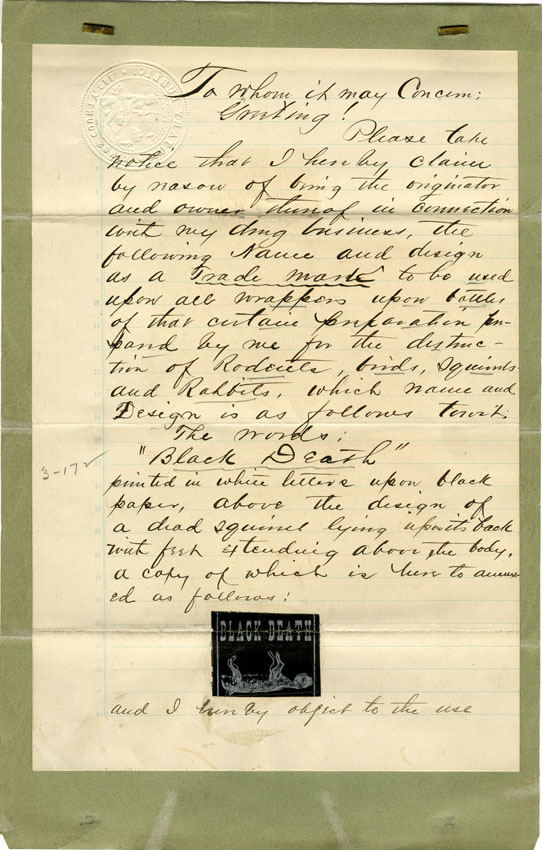 To whom it may Concern;
Greeting!
Please take
notice that I hereby claim
by reason of being the originator
and owner thereof in connection
with my drug business, the
following Name and design
as a Trade mark to be used
upon all wrappers upon bottles
of that certain preparation pre-
pared by me for the destruc-
tion of Rodents, birds, squirrels
and Rabbits, which name and
Design is as follows towit:
The words:
"Black Death"
3-172
printed in white letters upon black
paper, above the design of
a dead squirrel lying upon its back
with feet extending above the body,
a copy of which is here to annex-
ed as follows:
BLACK DEATH
and I hereby object to the use